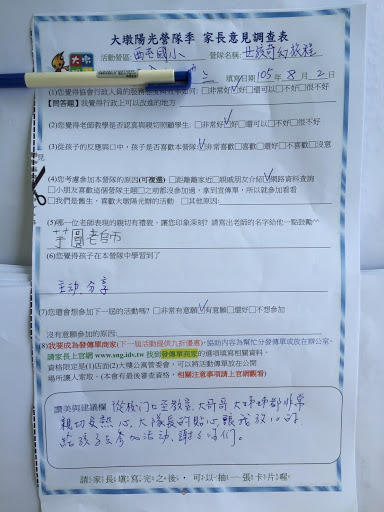 大墩陽光營隊季 家長意見調查表
活動營區: 西屯國小 營隊名稱: 世孩奇幻旅程
填寫日期 105 年 8 月 2 日
(1)您覺得協會行政人員的服務態度與效率如何: □非常好☑好□還可以□不好□很不好
【問答題】我覺得行政上可以改進的地方
(2)您覺得老師教學是否認真與親切照顧學生: □非常好☑好□還可以□不好□很不好
(3)從孩子的反應與口中,孩子是否喜歡本營隊☑非常喜歡□喜歡□還好□不喜歡□沒意見
(4)您考慮參加本營隊的原因(可複選) □距離離家近□親戚朋友介紹☑網路資料查詢
□小朋友喜歡這個營隊主題□之前都沒參加過,拿到宣傳單,所以就參加看看
□我們是舊生,喜歡大墩陽光辦的活動 □其他原因:
(5)哪一位老師表現的親切有禮貌,讓您印象深刻? 請寫出老師的名字給他一點鼓勵^^
芋圓老師
(6)您覺得孩子在本營隊中學習到了
主動、分享
(7)您還會想參加下一屆的活動嗎? □非常有意願☑有意願□還好□不想參加
沒有意願參加的原因:
(8)我要成為發傳單商家(下一屆活動提供九折優惠),協助內容為幫忙分發傳單或放在辦公室,
請家長上官網 www.sng.idv.tw 找到發傳單商家的選項填寫相關資料。
資格限定是(1)店面(2)大樓公寓管委會,可以將活動傳單放在公開
場所讓人索取。(本會有最後審查資格,相關注意事項請上官網觀看)
讚美與建議欄 從校門口至教室,大哥哥、大姊姊都非常
親切又熱心,大隊長的貼心讓我放心的
給孩子去參加活動,謝々你們。
請家長填寫完之後,可以抽一張卡片喔